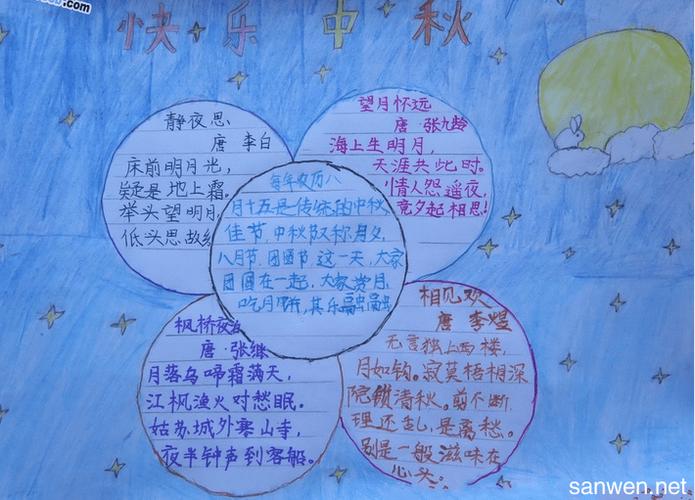 .com
快乐中秋
静夜思
唐 李白
床前明月光，
疑是地上霜。
举头望明月，
低头思故
望月怀远
唐 张九龄
海上生明月，
天涯共此时。
情人怨遥夜，
竟夕起相思！
每年农历八
月十五是传统的中秋
佳节，中秋又称月夕，
八月节，团圆节，这一天，大家
团圆在一起，大家赏月，
吃月饼，其乐融融
枫桥夜泊
唐·张继
月落乌啼霜满天，
江枫渔火对愁眠。
姑苏城外寒山寺，
夜半钟声到客船。
相见欢
唐 李煜
无言独上西楼，
月如钩。寂莫梧桐深
院锁清秋。剪不断，
理还乱，是离愁。
别是一般滋味在
心头。
sanwen.net